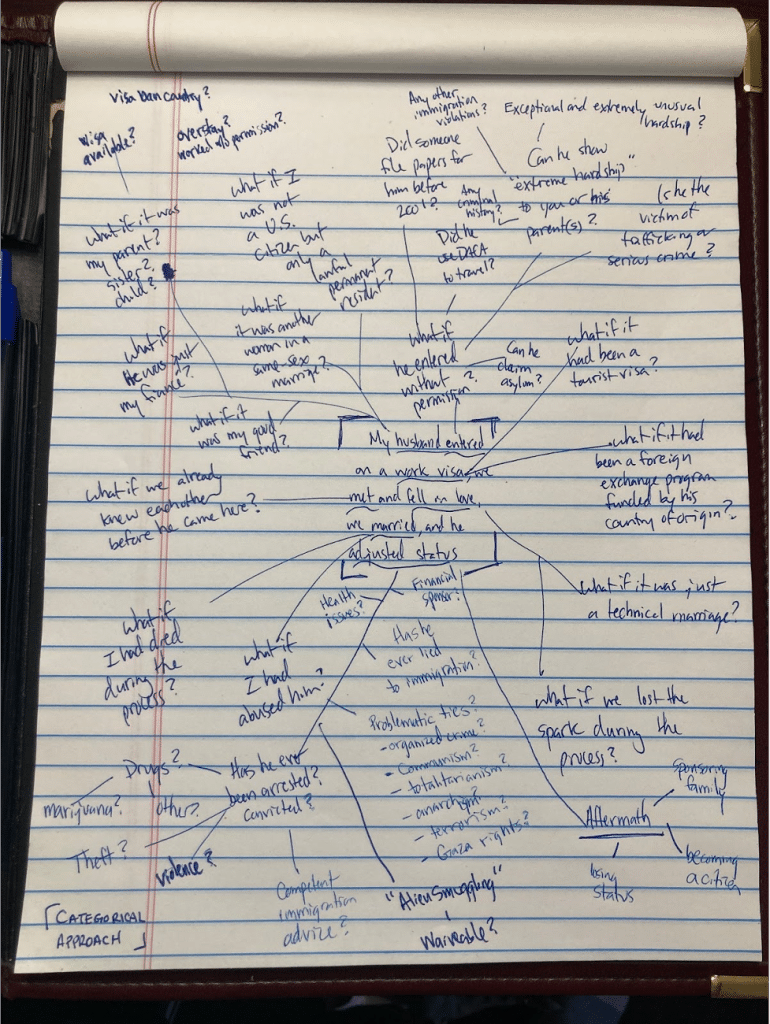 visa ban country?
visa
available?
overstay?
worked w/o permission?
Any other
immigration
violations?
Exceptional and extremely unusual
hardship?
what if I
was not
a U.S.
citizen but
only a
lawful
permanent
resident?
Did someone
file papers for
him before
2001?
Any
criminal
history?
Can he show
"extreme hardship"
to you or his
parent(s)?
Is he the
victim of
trafficking or
serious crime?
what if it was
my parent?
sister?
child?
Did he
use DACA
to travel?
what if
he was just
my fiancé?
what if
it was another
woman in a
same-sex
marriage?
what if
he entered
without
permission?
Can he
claim
asylum?
what if it
had been a
tourist visa?
what if it
was my good
friend?
My husband entered
on a work visa, we
met and fell in love,
we married and he
adjusted status
what if it had
been a foreign
exchange program
funded by his
country of origin?
what if we already
knew each other
before he came here?
Health
issues?
Financial
sponsor?
what if it was just
a technical marriage?
what if
I had died
during the
process?
what if
I had
abused him?
Has he
ever lied
to immigration?
what if we lost the
spark during the
process?
Problematic ties?
- organized crime?
- Communism?
- totalitarianism?
- anarchism?
- terrorism?
- Gaza rights?
Drugs?
marijuana?
other?
Has he ever
been arrested?
convicted?
Theft?
violence?
Aftermath
sponsoring
family
becoming
a citizen
losing
status
Competent
immigration
advice?
"Alien Smuggling"
Waiveable?
[CATEGORICAL
APPROACH]